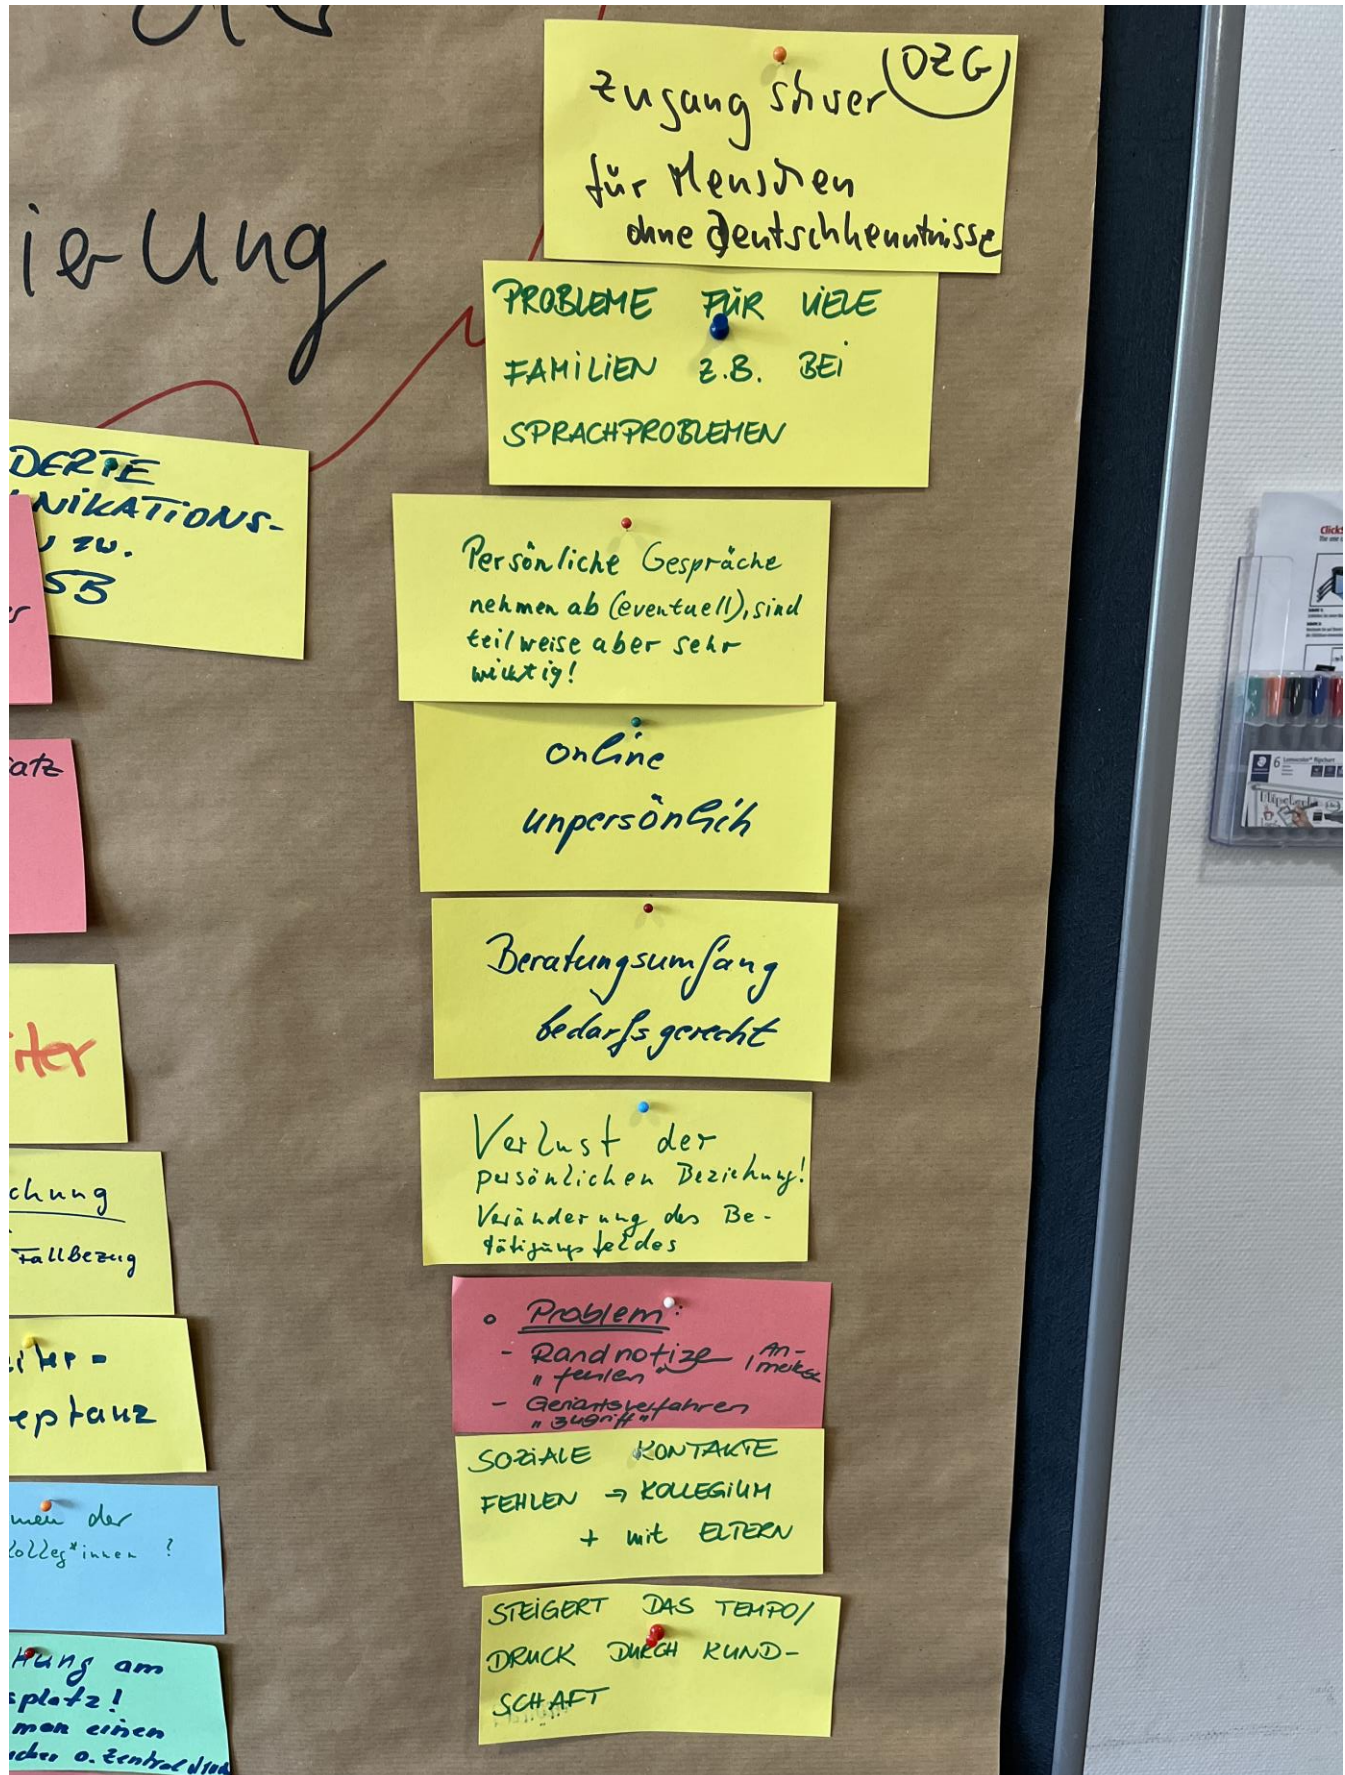 ierung
(OZG)
Zugang schwer
für Menschen
ohne Deutschkenntnisse
PROBLEME FÜR VIELE
FAMILIEN Z.B. BEI
SPRACHPROBLEMEN
DERTE
NIKATIONS-
ZW.
SB
Persönliche Gespräche
nehmen ab (eventuell), sind
teilweise aber sehr
wichtig!
online
unpersönlich
Beratungsumfang
bedarfsgerecht
Verlust der
persönlichen Beziehung!
Veränderung des Be-
tätigungsfeldes
Problem:
- Randnotize
"fehlen"
- Gerichtsverfahren
"Zugriff"
SOZIALE KONTAKTE
FEHLEN → KOLLEGIUM
+ mit ELTERN
STEIGERT DAS TEMPO/
DRUCK DURCH KUND-
SCHAFT
atz
chung
Fallbezug
eptanz
men der
olleg*innen ?
hung am
splatz!
man einen
o. Zentral
6 Lumocolor® flipchart